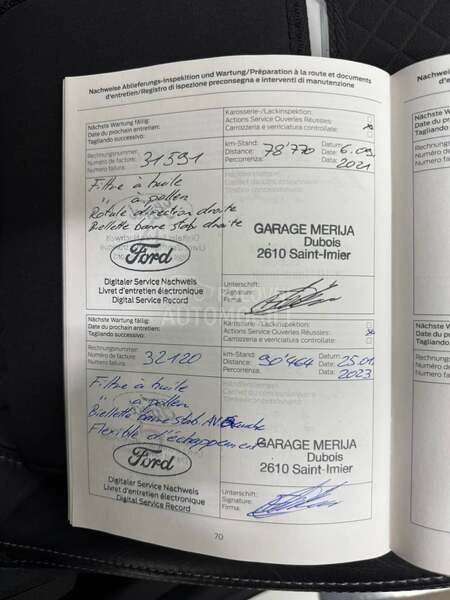 Nachweise Ablieferungs-Inspektion und Wartung/Préparation à la route et documents
d'entretien/Registro di ispezione preconsegna e interventi di manutenzione
Nächste Wartung fällig:
Date du prochain entretien:
Tagliando successivo:
Karosserie-/Lackinspektion:
Actions Service Ouvertes Réalisées:
Carrozzeria e verniciatura controllate:
Rechnungsnummer:
Numéro de facture: 31591
Numero fattura:
km-Stand:
Distance: 78'770
Percorrenza:
Datum:
Date: 6.09
Data: 2021
Filtre à huile
" à pollen
Rotule direction droite
Biellette barre stab droite
GARAGE MERIJA
Dubois
2610 Saint-Imier
Ford
Digitaler Service Nachweis
Livret d'entretien électronique
Digital Service Record
Unterschrift:
Signature:
Firma:
Nächste Wartung fällig:
Date du prochain entretien:
Tagliando successivo:
Karosserie-/Lackinspektion:
Actions Service Ouvertes Réalisées:
Carrozzeria e verniciatura controllate:
Rechnungsnummer:
Numéro de facture: 32120
Numero fattura:
km-Stand:
Distance: 90'464
Percorrenza:
Datum:
Date: 25.01
Data: 2023
Filtre à huile
" à pollen
Biellette barre stab AV Gauche
Flexible d'échappement
GARAGE MERIJA
Dubois
2610 Saint-Imier
Ford
Digitaler Service Nachweis
Livret d'entretien électronique
Digital Service Record
Unterschrift:
Signature:
Firma:
70